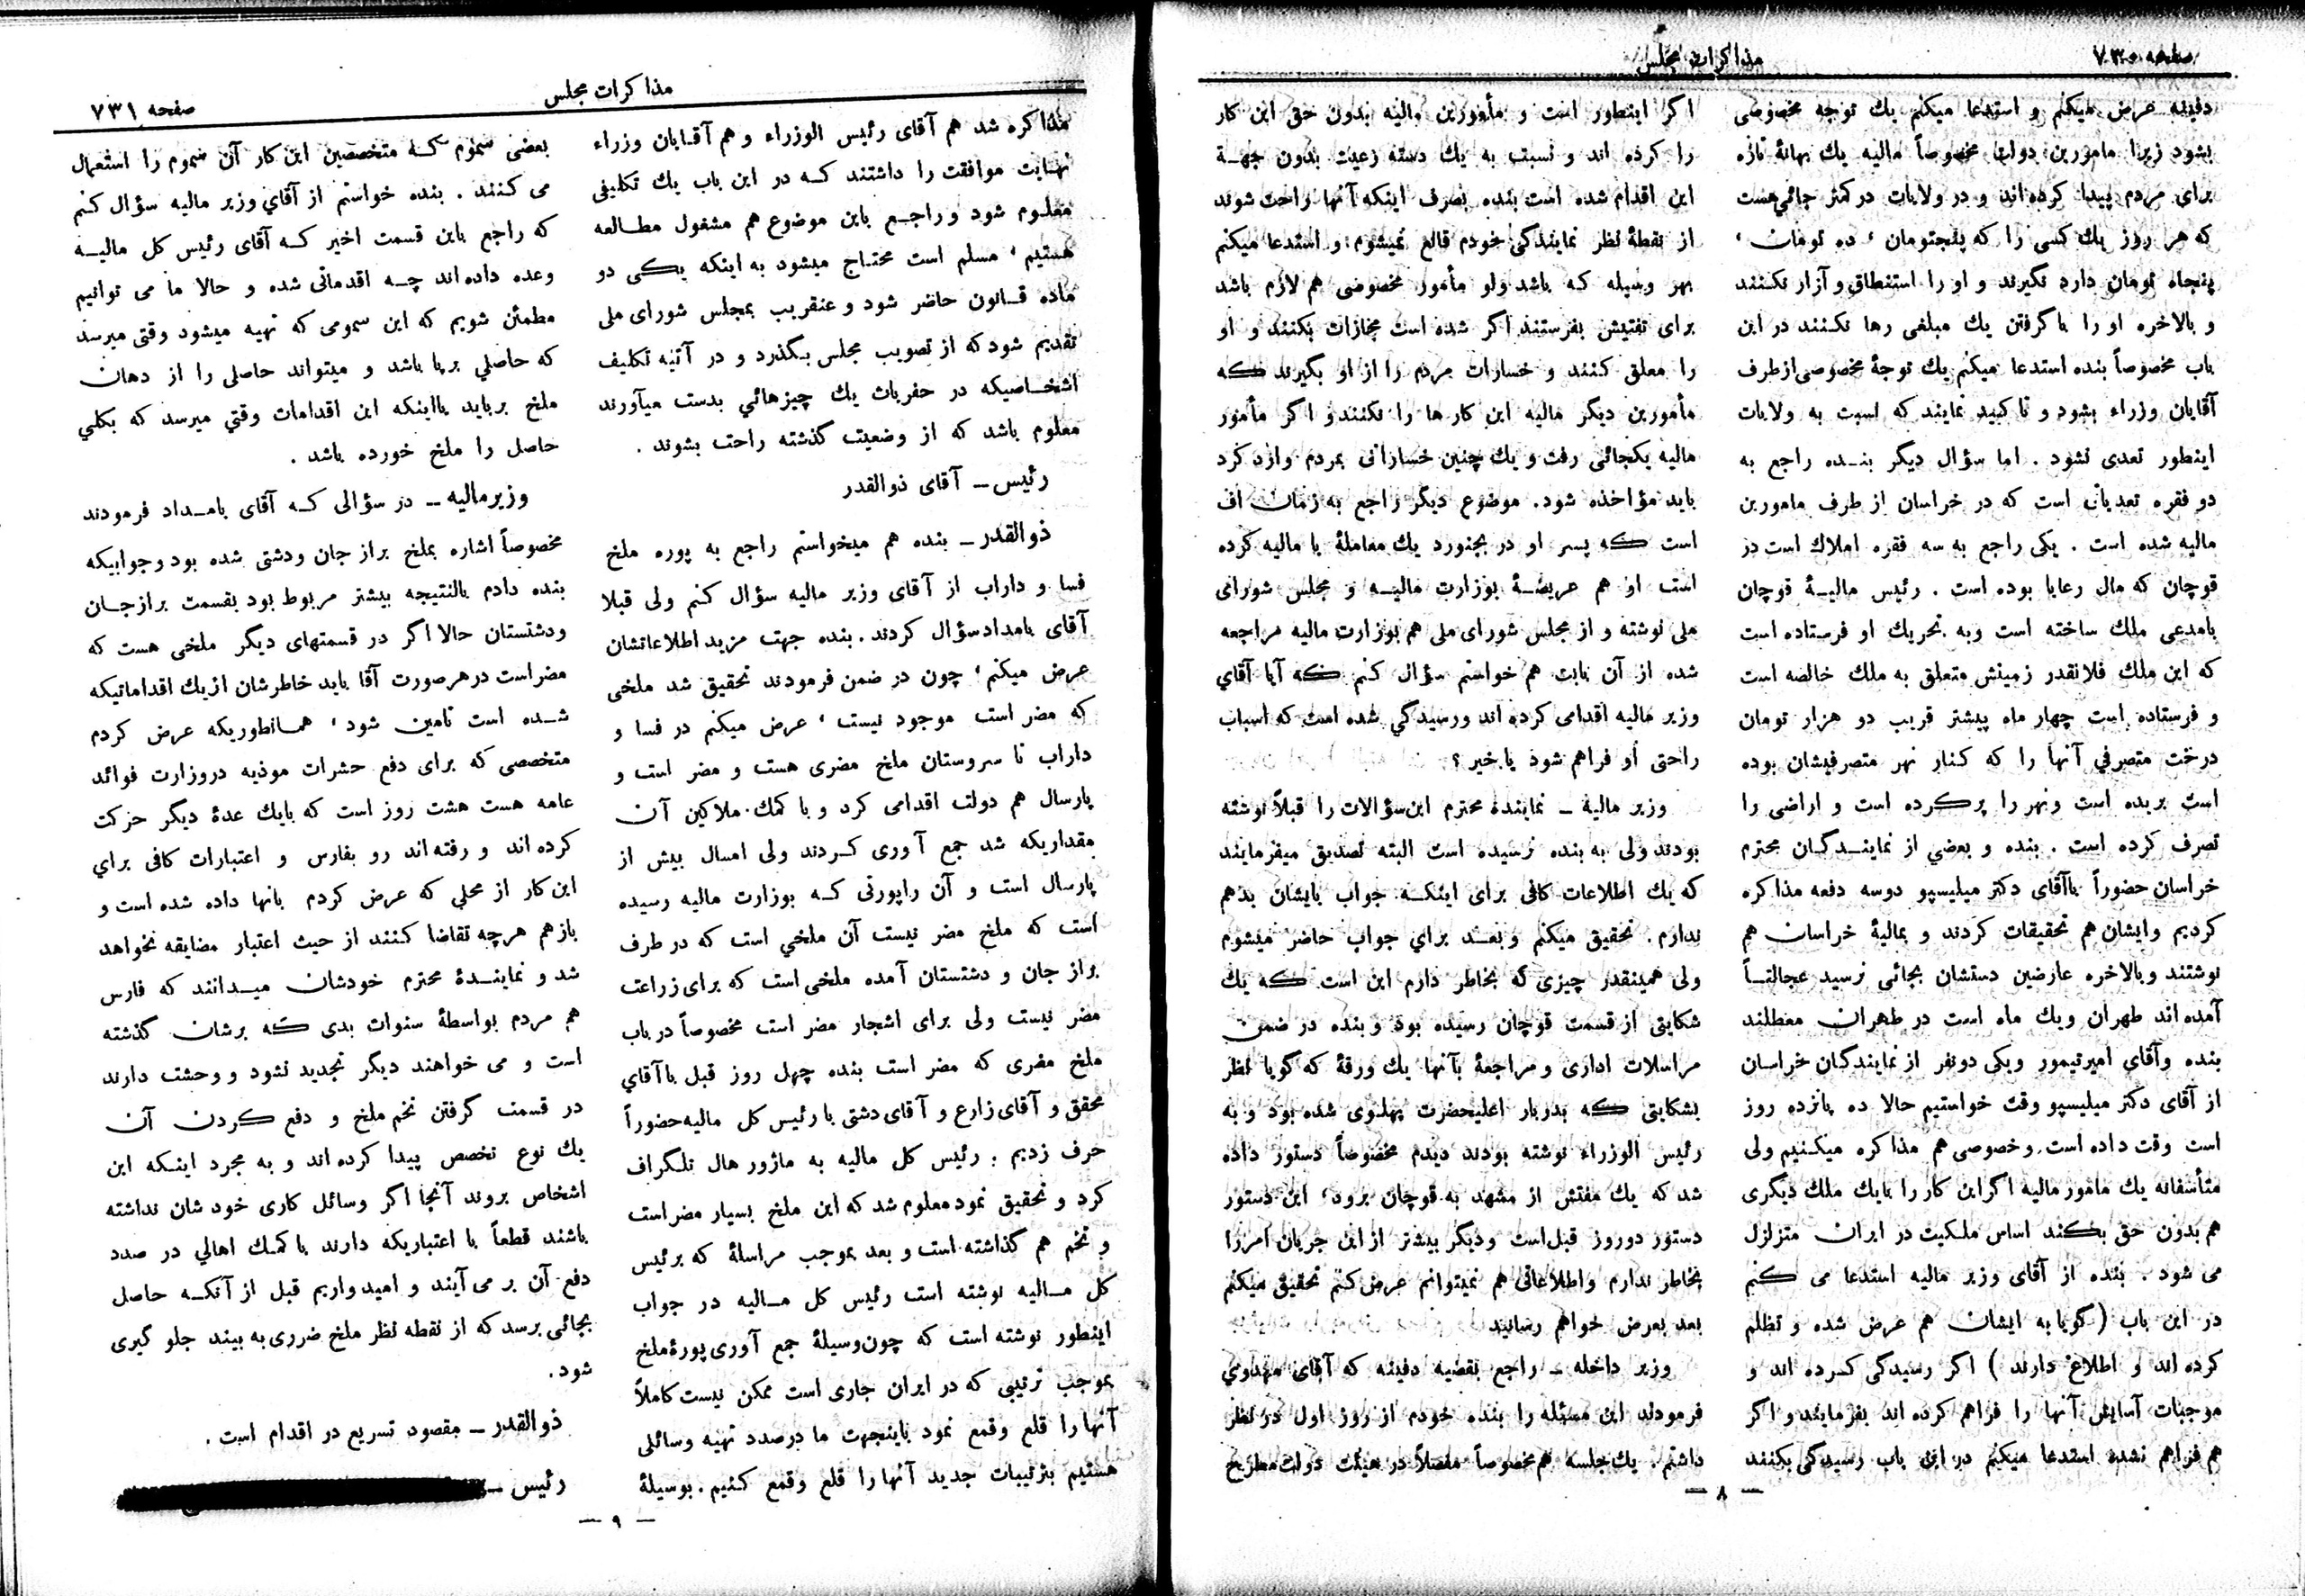 صفحه ۷۳۰
مذاکرات مجلس
دفینه عرض میکنم و استدعا میکنم یك توجه مخصوصی
بشود زیرا مامورین دولت مخصوصاً مالیه یك بهانهٔ تازه
برای مردم پیدا کرده‌اند و در ولایات در کمتر جائی هست
که هر روز یك کسی را که پنجتومان ، ده تومان ،
پنجاه تومان دارد نگیرند و او را استنطاق و آزار نکنند
و بالاخره او را با گرفتن یك مبلغی رها نکنند در این
باب مخصوصاً بنده استدعا میکنم یك توجهٔ مخصوصی از طرف
آقایان وزراء بشود و تاکید نمایند که نسبت به ولایات
اینطور تعدی نشود . اما سؤال دیگر بنده راجع به
دو فقره تعدیاتی است که در خراسان از طرف مامورین
مالیه شده است . یکی راجع به سه فقره املاك است در
قوچان که مال رعایا بوده است . رئیس مالیهٔ قوچان
بامدعی ملك ساخته است وبه تحریك او فرستاده است
که این ملك فلانقدر زمینش متعلق به ملك خالصه است
و فرستاده است چهار ماه پیشتر قریب دو هزار تومان
درخت متصرفي آنها را که کنار نهر متصرفیشان بوده
است بریده است ونهر را پر کرده است و اراضی را
تصرف کرده است . بنده و بعضي از نمایندگان محترم
خراسان حضوراً باآقای دکتر میلیسپو دوسه دفعه مذاکره
کردیم وایشان هم تحقیقات کردند و بمالیهٔ خراسان هم
نوشتند وبالاخره عارضین دستشان بجائی نرسید عجالتاً
آمده‌اند طهران ویك ماه است در طهران معطلند
بنده وآقاي امیرتیمور ویکی دونفر از نمایندگان خراسان
از آقای دکتر میلیسپو وقت خواستیم حالا ده پانزده روز
است وقت داده است. وخصوصی هم مذاکره میکنیم ولی
متأسفانه یك مامور مالیه اگر این کار را بایك ملك دیگری
هم بدون حق بکند اساس ملکیت در ایران متزلزل
می شود . بنده از آقای وزیر مالیه استدعا می کنم
در این باب ( گویا به ایشان هم عرض شده و تظلم
کرده‌اند و اطلاع دارند ) اگر رسیدگی کرده‌اند و
موجبات آسایش آنها را فراهم کرده‌اند بفرمایند و اگر
هم فراهم نشده استدعا میکنم در این باب رسیدگی بکنند
اگر اینطور است و مأمورین مالیه بدون حق این کار
را کرده‌اند و نسبت به یك دسته رعیت بدون جهة
این اقدام شده است بنده بصرف اینکه آنها راحت شوند
از نقطهٔ نظر نمایندگی خودم قانع نمیشوم و استدعا میکنم
بهر وسیله که باشد ولو مأمور مخصوصی هم لازم باشد
برای تفتیش بفرستند اگر شده است مجازات بکنند و او
را معلق کنند و خسارات مردم را از او بگیرند که
مأمورین دیگر مالیه این کار ها را نکنند و اگر مأمور
مالیه بکجائی رفت و یك چنین خساراتی بمردم وارد کرد
باید مؤاخذه شود. موضوع دیگر راجع به زمان اف
است که پسر او در بجنورد یك معاملهٔ با مالیه کرده
است او هم عریضهٔ بوزارت مالیه و مجلس شورای
ملی نوشته و از مجلس شورای ملی هم بوزارت مالیه مراجعه
شده از آن بابت هم خواستم سؤال کنم که آیا آقاي
وزیر مالیه اقدامی کرده‌اند ورسیدگي شده است که اسباب
راحتی او فراهم شود یا خیر ؟
وزیر مالیه ــ نمایندهٔ محترم این سؤالات را قبلاً نوشته
بودند ولی به بنده نرسیده است البته تصدیق میفرمایند
که یك اطلاعات کافی برای اینکه جواب بایشان بدهم
ندارم . تحقیق میکنم و بعد براي جواب حاضر میشوم
ولی همینقدر چیزی که بخاطر دارم این است که یك
شکایتی از قسمت قوچان رسیده بود و بنده در ضمن
مراسلات اداری و مراجعهٔ بآنها یك ورقهٔ که گویا نظر
بشکایتی که بدربار اعلیحضرت پهلوی شده بود و به
رئیس الوزراء نوشته بودند دیدم مخصوصاً دستور داده
شد که یك مفتش از مشهد به قوچان برود، این دستور
دستور دوروز قبل است ودیگر بیشتر از این جریان امر را
بخاطر ندارم واطلاعاتی هم نمیتوانم عرض کنم تحقیق میکنم
بعد بعرض خواهم رسانید
وزیر داخله ــ راجع بقضیه دفینه که آقای مهدوي
فرمودند این مسئله را بنده خودم از روز اول در نظر
داشتم . یك جلسه هم مخصوصاً مفصلاً در هیئت دولت مطرح
— ۸ —
مذاکرات مجلس
صفحه ۷۳۱
مذاکره شد هم آقای رئیس الوزراء و هم آقایان وزراء
نهایت موافقت را داشتند که در این باب یك تکلیفی
معلوم شود وراجع باین موضوع هم مشغول مطالعه
هستیم ، مسلم است محتاج میشود به اینکه یکی دو
ماده قانون حاضر شود و عنقریب بمجلس شورای ملی
تقدیم شود که از تصویب مجلس بگذرد و در آتیه تکلیف
اشخاصیکه در حفریات یك چیزهائي بدست میآورند
معلوم باشد که از وضعیت گذشته راحت بشوند .
رئیس ــ آقای ذوالقدر
ذوالقدر ــ بنده هم میخواستم راجع به پوره ملخ
فسا و داراب از آقای وزیر مالیه سؤال کنم ولی قبلا
آقای بامداد سؤال کردند . بنده جهت مزید اطلاعاتشان
عرض میکنم ، چون در ضمن فرمودند تحقیق شد ملخی
که مضر است موجود نیست ، عرض میکنم در فسا و
داراب تا سروستان ملخ مضری هست و مضر است و
پارسال هم دولت اقدامی کرد و با کمك ملاکین آن
مقداریکه شد جمع آوری کردند ولی امسال بیش از
پارسال است و آن راپورتی که بوزارت مالیه رسیده
است که ملخ مضر نیست آن ملخي است که در طرف
براز جان و دشتستان آمده ملخی است که برای زراعت
مضر نیست ولی برای اشجار مضر است مخصوصاً در باب
ملخ مضری که مضر است بنده چهل روز قبل باآقاي
محقق و آقای زارع و آقای دشتی با رئیس کل مالیه حضوراً
حرف زدیم . رئیس کل مالیه به ماژور هال تلگراف
کرد و تحقیق نمود معلوم شد که این ملخ بسیار مضر است
و تخم هم گذاشته است و بعد بموجب مراسلهٔ که برئیس
کل مالیه نوشته است رئیس کل مالیه در جواب
اینطور نوشته است که چون وسیلهٔ جمع آوری پورهٔ ملخ
بموجب ترتیبی که در ایران جاری است ممکن نیست کاملاً
آنها را قلع وقمع نمود باینجهت ما درصدد تهیه وسائلی
هستیم بترتیبات جدید آنها را قلع وقمع کنیم . بوسیلهٔ
بعضی سموم که متخصصین این کار آن سموم را استعمال
می کنند . بنده خواستم از آقاي وزیر مالیه سؤال کنم
که راجع باین قسمت اخیر که آقای رئیس کل مالیه
وعده داده‌اند چه اقدماتی شده و حالا ما می توانیم
مطمئن شویم که این سمومی که تهیه میشود وقتی میرسد
که حاصلي برپا باشد و میتواند حاصلی را از دهان
ملخ برباید یااینکه این اقدامات وقتي میرسد که بکلي
حاصل را ملخ خورده باشد .
وزیر مالیه ــ در سؤالی که آقای بامداد فرمودند
مخصوصاً اشاره بملخ براز جان ودشتی شده بود وجوابیکه
بنده دادم بالنتیجه بیشتر مربوط بود بقسمت برازجان
ودشتستان حالا اگر در قسمتهای دیگر ملخی هست که
مضراست درهرصورت آقا باید خاطرشان ازیك اقداماتیکه
شده است تامین شود ، همانطوریکه عرض کردم
متخصصی که برای دفع حشرات موذیه دروزارت فوائد
عامه هست هشت روز است که بایك عدهٔ دیگر حرکت
کرده‌اند و رفته‌اند رو بفارس و اعتبارات کافی براي
این کار از محلی که عرض کردم بانها داده شده است و
بازهم هرچه تقاضا کنند از حیث اعتبار مضایقه نخواهد
شد و نمایندهٔ محترم خودشان میدانند که فارس
هم مردم بواسطهٔ سنوات بدی که برشان گذشته
است و می خواهند دیگر تجدید نشود و وحشت دارند
در قسمت گرفتن تخم ملخ و دفع کردن آن
یك نوع تخصص پیدا کرده‌اند و به مجرد اینکه این
اشخاص بروند آنجا اگر وسائل کاری خود شان نداشته
باشند قطعاً با اعتباریکه دارند با کمك اهالي در صدد
دفع آن بر می آیند و امیدواریم قبل از آنکه حاصل
بجائی برسد که از نقطه نظر ملخ ضرری به بیند جلو گیری
شود .
ذوالقدر ــ مقصود تسریع در اقدام است .
رئیس ــ
— ۹ —